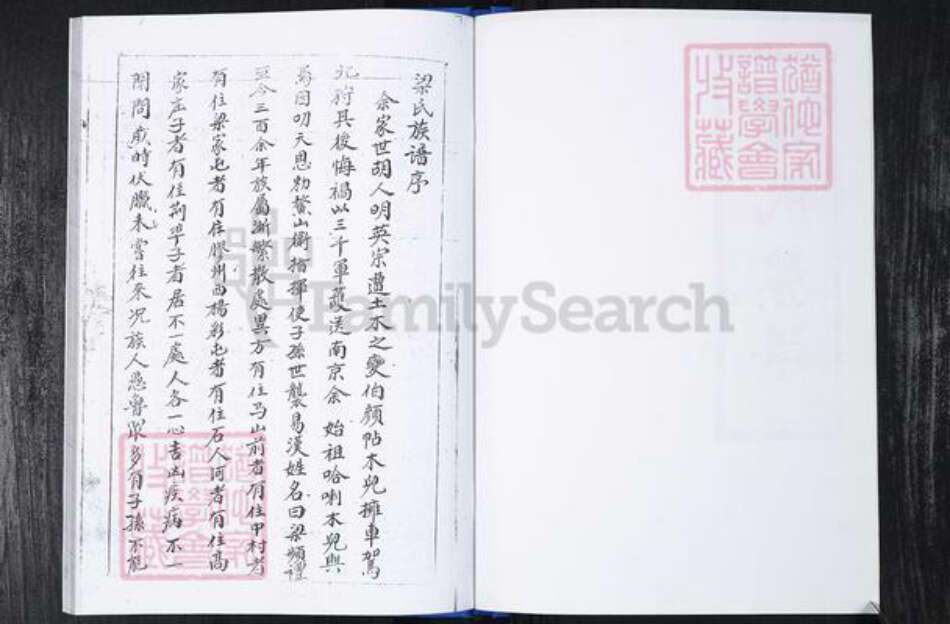 梁氏族谱序
余家世胡人明英宗遭土木之變伯顏帖木兒擁車駕
北狩其後悔禍以三千軍護送南京余 始祖哈喇木兒與
焉因叨天恩勅鰲山衛指揮使子孫世襲易漢姓名曰梁頫禮
至今三百余年族属漸繁散處異方有住马山前者有住甲村者
有住梁家屯者有住膠州西楊彩屯者有住石人河者有住高
家庄子者有住荊埠子者居不一處人各一心吉凶疾病不一
閒問歲時伏臘未嘗往來况族人愚魯眾多有子孫不能
猶他家
譜學會
收藏
猶他家
譜學會
收藏
FamilySearch